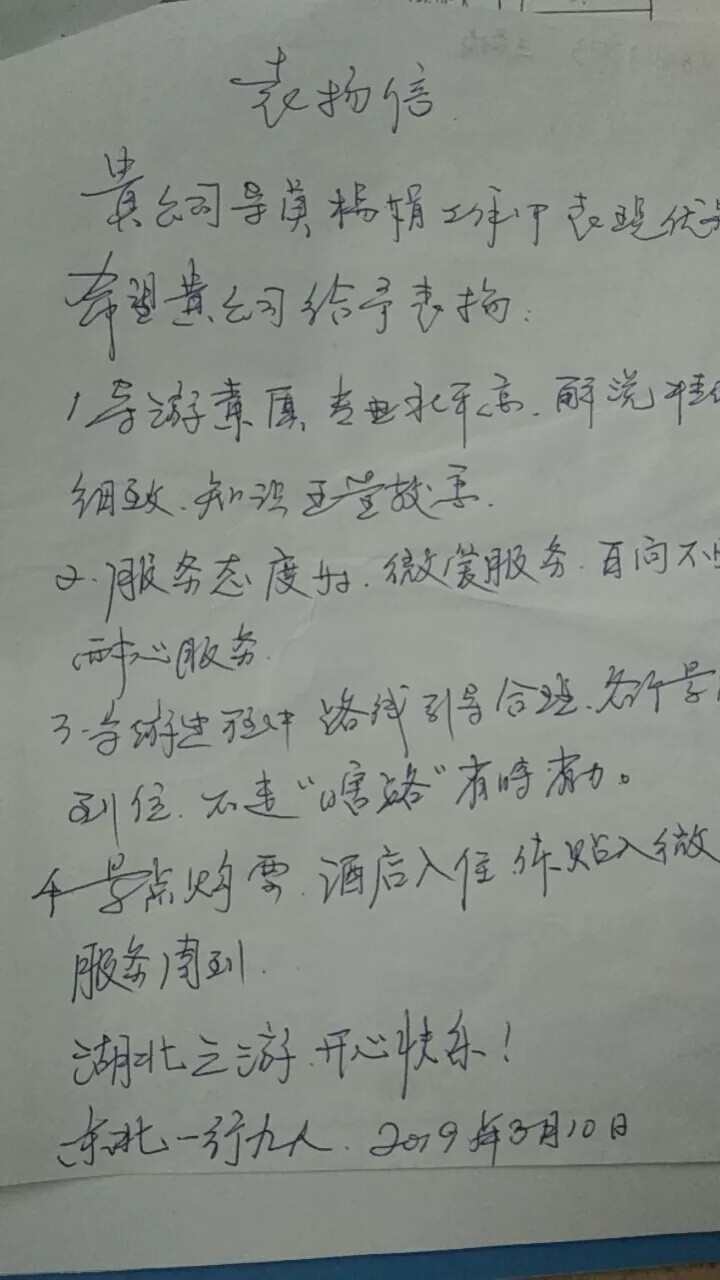 表扬信
贵公司导员杨娟工作中表现优异
希望贵公司给予表扬:
1导游素质,专业水平高.解说准
细致.知识丰富
2.服务态度好.微笑服务.百问不
耐心服务.
3.导游过程中路线引导合理.各个景
到位.不走“瞎路”省时省力。
4景点购票.酒店入住体贴入微
服务周到.
湖北之游.开心快乐!
东北一行九人.2019年3月10日